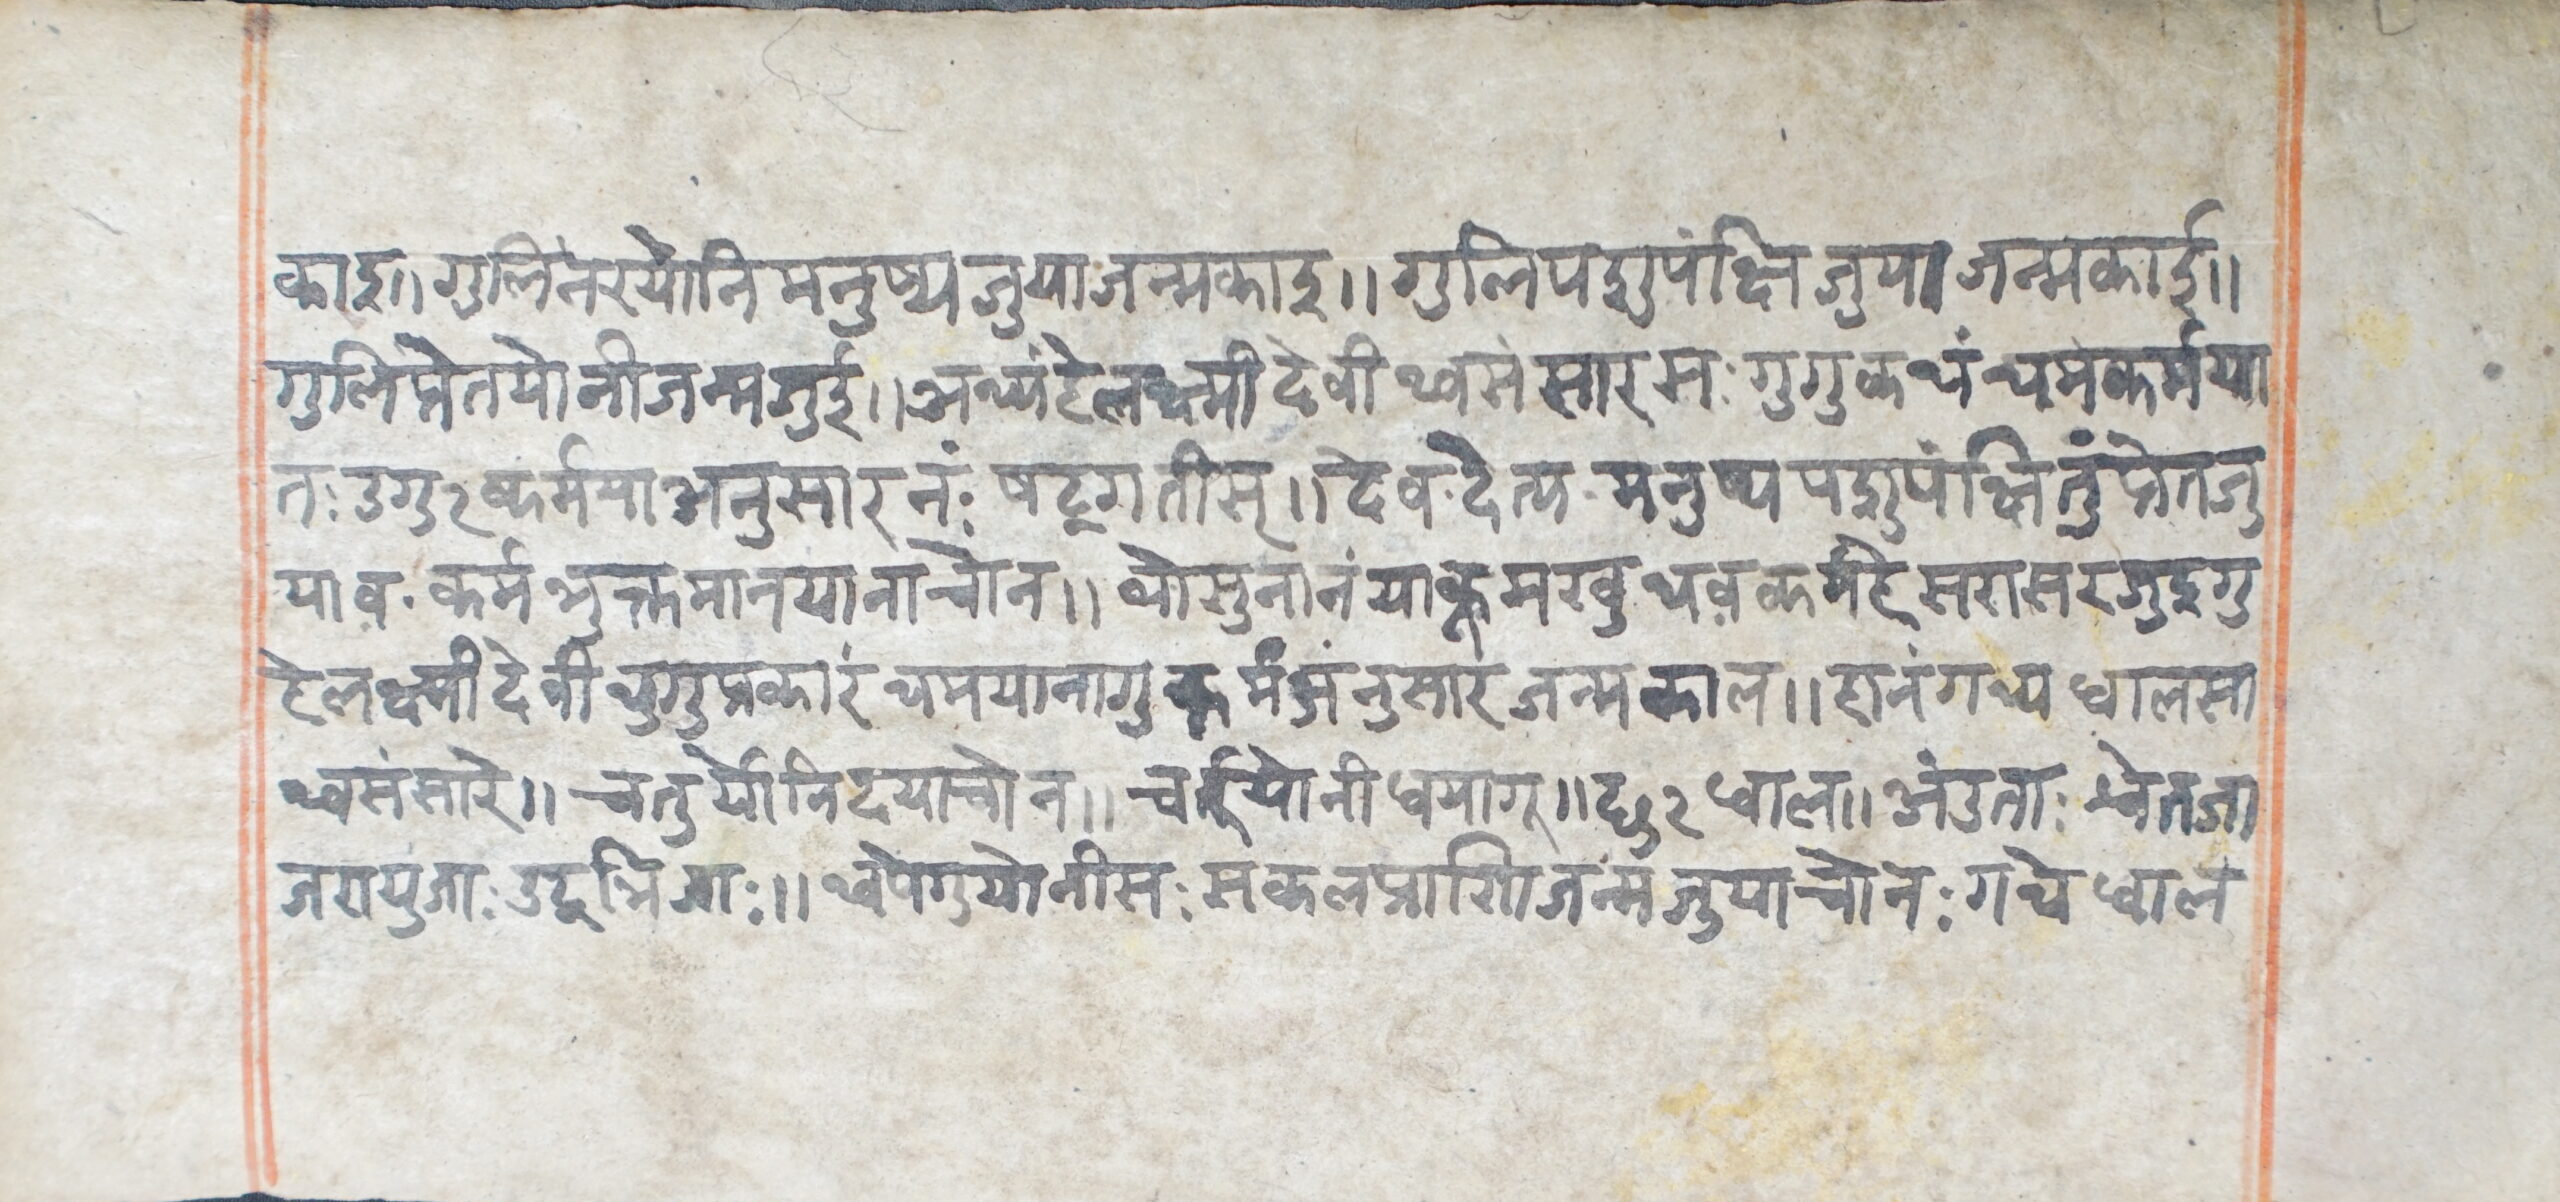 काइ॥ गुलिंनरयोनि मनुष्य जुया जन्मकाइ॥ गुलि पशुपंक्षि जुया जन्मकाई॥
गुलि प्रेतयोनी जन्म जुई॥ अथ्यं हे लक्ष्मी देवी थ्वसंसारस: गुगु कथं थमं कर्मया
त: उगु२ कर्मया अनुसारनं: षट्गतीस॥ देव. दैत्य. मनुष्य पशुपंक्षि तुं प्रेतजु
याव. कर्म भुक्तमानयाना चोन॥ थो सुनानं याकूमखु थव कर्म हे सरासर जुइगु
हे लक्ष्मी देवी थुगु प्रकारं थमयानागु कर्मअंनुसारं जन्मकाल॥ हानं गथ्य धालसा
थ्वसंसारे॥ चतुर्योनि दयाचोन॥ चर्तुयोनी धयागू॥ छु२ धाल॥ अंउता: श्वेतजा
जरायुजा: उद्भिजा:॥ थ्वपेगुयोनीस: सकल प्राणि जन्म जुयाचोन: गथे धाल